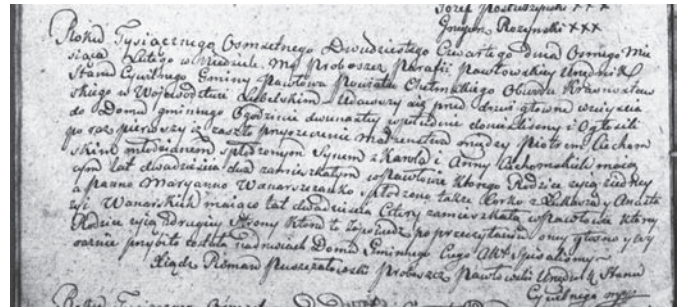 Jozef Postuszynski XXX
Grzegorz Rozynski XXX
Roku Tysiącznego Osmsetnego Dwudziestego Czwartego dnia Osmego Mie
siąca Lutego w Niedziele. My Proboszcz Parafii Pawłowskiey Urzędnik
Stanu Cywilnego Gminy Pawłowa Powiatu Chełmskiego Obwodu Krasnostaw
skiego w Wojewodztwie Lubelskim Udawszy się przed drzwi głowne weiscia
do Domu gminnego Ogodzinie dwunastey wpołudnie donieslismy i Ogłosili
po raz pierwszy iż zaszło przyrzeczenie Małżenstwa między Piotrem Ciechom
skim młodzianem spłodzonym Synem z Karola i Anny Ciechomskich maią
cym lat dwadziescia dwa zamieszkałym wPawłowie ktorego Rodzice zyią ziedney
a Panno Maryanno Wanarszczanko spłodzono także Corko z Łukasza y Anasta
zyi Wanarskich maiąco lat dwadziescia Cztery zamieszkałą wPawłowie ktorey
Rodzice zyią zdrugiey Strony Ktora to Zapowiedz po przeczytaniu oney głosno y wy
raznie przybito została nadrzwiach Domu Gminnego Czego Akt spisalismy
Xiądz Roman Puszczałowski Proboszcz Pawłowski Urzędnik Stanu
Cywilnego mp
Roku Tysiącznego